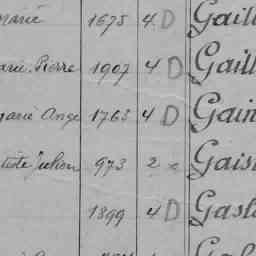 Marie 1675 4 D Gaill
arie Pierre 1907 4 D Gaill
Marie Ange 1763 4 D Gain
tiste Julien 973 2 x Gais
1899 4 D Gasl